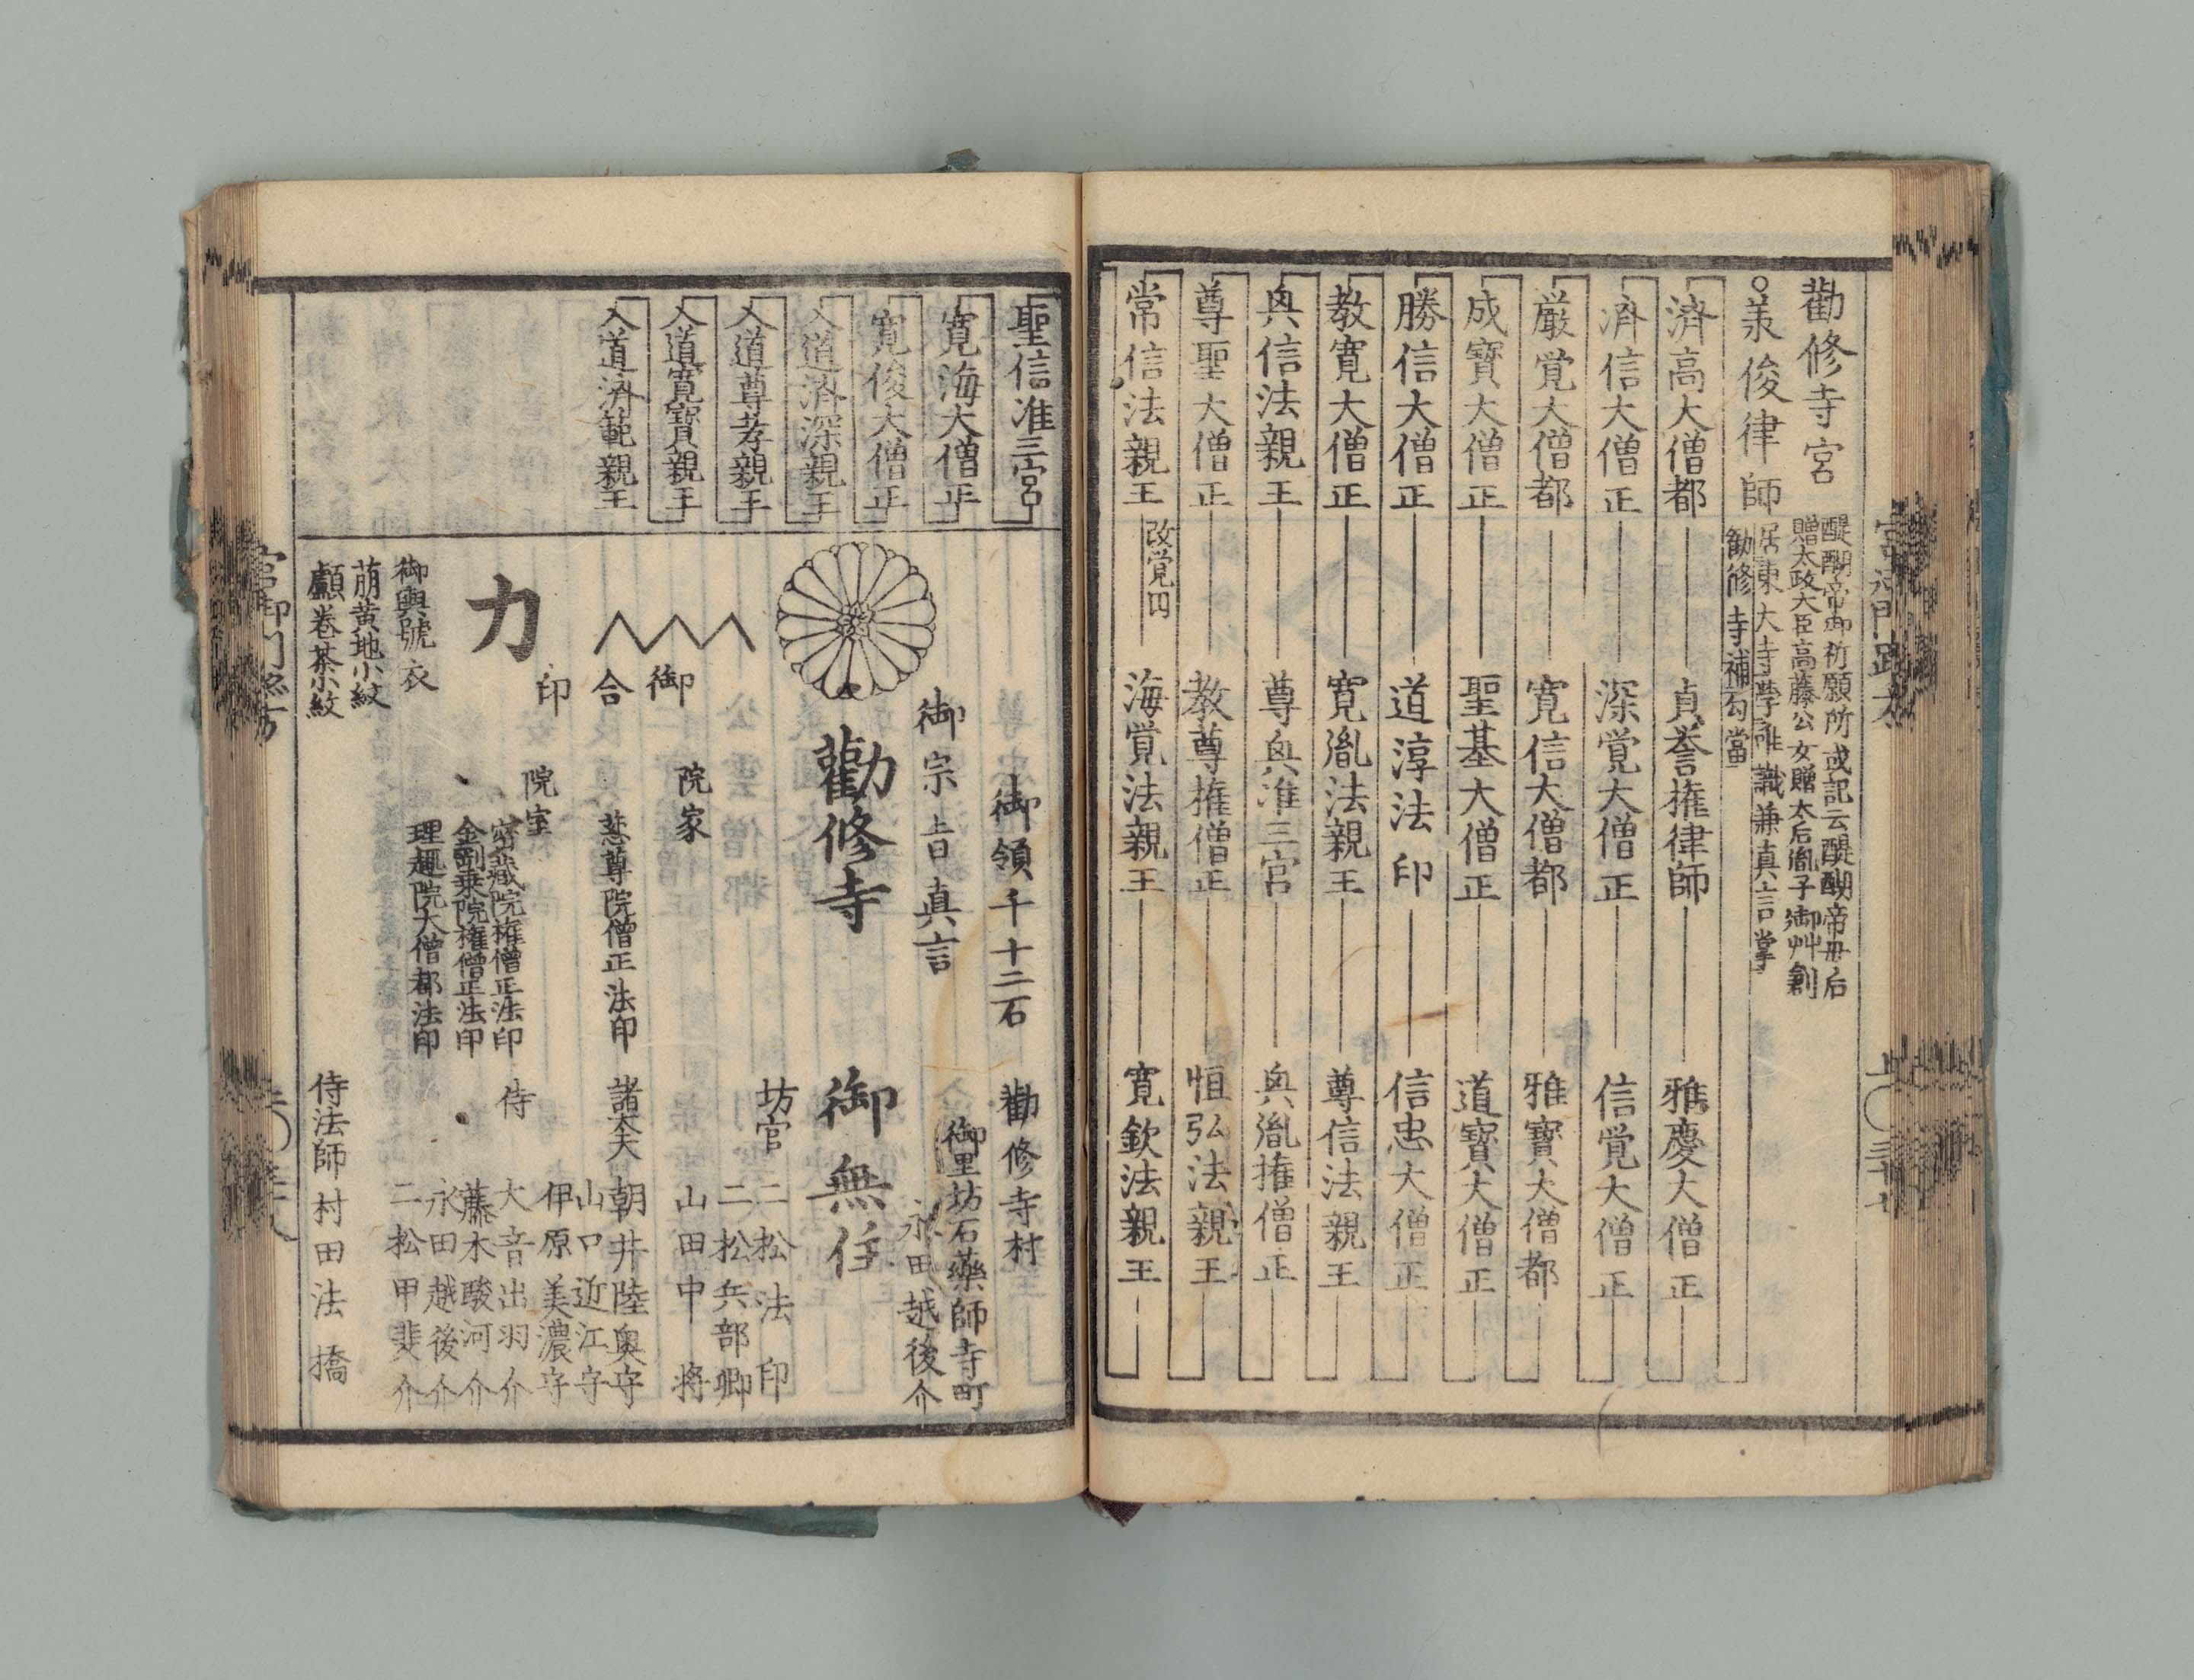 勸修寺宮
醍醐帝御祈願所或記云醍醐帝毋后
贈太政大臣高藤公女贈太后胤子御艸創
○羕俊律師
居東大寺學雖識兼真言掌
勧修寺補勾當
濟高大僧都
貞誉権律師
雅慶大僧正
済信大僧正
深覚大僧正
信覚大僧正
厳覚大僧都
寛信大僧都
雅寶大僧都
成寶大僧正
聖基大僧正
道寶大僧正
勝信大僧正
道淳法印
信忠大僧正
教寛大僧正
寛胤法親王
尊信法親王
㒷信法親王
尊㒷准三宮
㒷胤権僧正
尊聖大僧正
教尊権僧正
恒弘法親王
常信法親王
改覚円
海覚法親王
寛欽法親王
聖信准三宮
寛海大僧正
寛俊大僧正
入道済深親王
入道尊孝親王
入道寛寶親王
入道済範親王
御領千十二石
勸修寺村
御宗旨真言
御里坊石藥師寺町
永田越後介
勸修寺
御無住
坊官
二松法印
二松兵部卿
山田中將
御
合
印
力
院家
慈尊院僧正法印
諸大夫
朝井陸奥守
山口近江守
伊原美濃守
院室
密蔵院権僧正法印
金剛乗院権僧正法印
理趣院大僧都法印
侍
大音出羽介
藤木駿河介
永田越後介
二松甲斐介
御輿號衣
萠黄地小紋
顱巻茶小紋
侍法師
村田法橋